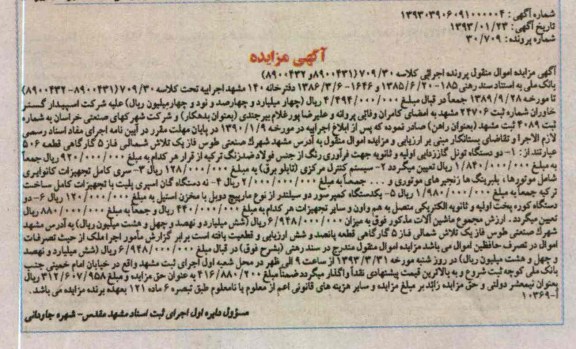 شماره آگهی : ۱۳۹۳۰۳۹۰۶۰۹۱۰۰۰۰۰۴
تاریخ آگهی: ۱۳۹۳/۰۱/۲۳
شماره پرونده: ۳۰/۷۰۹
آگهی مزایده
آگهی مزایده اموال منقول پرونده اجرائی کلاسه ۷۰۹/۳۰ (۸۹۰۰۴۳۱و ۸۹۰۰۴۳۲)
بانک ملی به استناد سند رهنی ۱۸۵-۱۳۸۵/۶/۲۰ و ۱۶۴۶-۱۳۸۶/۳/۶ دفترخانه ۱۴۰ مشهد اجرائیه تحت کلاسه ۷۰۹/۳۰ (۸۹۰۰۴۳۱-۸۹۰۰۴۳۲)
تا مورخه ۱۳۸۹/۹/۲۸ جمعاً در قبال مبلغ ۴/۴۹۴/۰۰۰/۰۰۰ ریال (چهار میلیارد و چهارصد و نود و چهارمیلیون ریال) علیه شرکت اسپیدار گستر
خاوران شماره ثبت ۲۴۷۰۶ مشهد به امضای کامران وفائی پروانه و علیرضا پورغلام بیرجندی (بعنوان بدهکار) و شرکت شهرکهای صنعتی خراسان به شماره
ثبت ۴۰۸۹ ثبت مشهد (بعنوان راهن) صادر نموده که پس از ابلاغ اجرائیه در مورخه ۱۳۹۰/۱/۹ در پایان مهلت مقرر در آیین نامه اجرای مفاد اسناد رسمی
لازم الاجرا و تقاضای بستانکار مبنی بر ارزیابی و مزایده اموال منقول به آدرس مشهد شهرک صنعتی طوس فاز یک تلاش شمالی فاز ۵ گاراهی قطعه ۵۰۶
عبارتند از: ۱- دو دستگاه تونل گاززدایی اولیه و ثانویه جهت فرآوری رنگ از جنس فولاد ضدزنگ ترکیه از قرار هر کدام به مبلغ ۹۲۰/۰۰۰/۰۰۰ ریال جمعاً
به مبلغ ۱/۸۴۰/۰۰۰/۰۰۰ ریال تعیین میگردد ۲- سیستم کنترل مرکزی (تابلو برق) به مبلغ ۱۲۸/۰۰۰/۰۰۰ ریال ۳- سری کامل تجهیزات کانوایری
شامل موتورها، بلبرینگ ها زنجیر های موتوری و ... جمعاً به مبلغ ۲/۰۰۰/۰۰۰/۰۰۰ ریال ۴- نه دستگاه گان اسپری پلیت با تجهیزات کامل ساخت
ترکیه جمعاً به مبلغ ۱/۹۸۰/۰۰۰/۰۰۰ ریال ۵- یکدستگاه کمپرسور دو سیلندر از نوع مارپیچ دوبل با مخزن استیل به مبلغ ۱۲۰/۰۰۰/۰۰۰ ریال ۶- دو
دستگاه کوره پخت اولیه و ثانویه الکتریکی متصل به هم و اون و سایر تجهیزات هر کدام به مبلغ ۴۴۰/۰۰۰/۰۰۰ ریال و جمعاً به مبلغ ۸۸۰/۰۰۰/۰۰۰ ریال
تعیین میگردد . ارزش مجموع ماشین آلات مذکور فوق به میزان ۶/۹۴۸/۰۰۰/۰۰۰ ریال (شش میلیارد و نهصد و چهل و هشت میلیون ریال) به آدرس مشهد
شهرک صنعتی طوس فاز یک تلاش شمالی فاز ۵ گاراگاهی قطعه پانصد و شش ارزیابی و قطعیت یافته است برابر گزارش مأمور اجرا ملک از حیث تصرفات
اموال در تصرف حافظین اموال می باشد مزایده اموال منقول مندرج در سند رهنی (بشرح فوق) در قبال مبلغ ۶/۹۴۸/۰۰۰/۰۰۰ ریال (شش میلیارد و نهصد
و چهل و هشت میلیون ریال) در روز شنبه مورخه ۱۳۹۳/۳/۳۱ از ساعت ۹ الی ظهر در محل شعبه اول اجرای ثبت مشهد واقع در خیابان امام خمینی جنب
بانک ملی کوچه ثبت شروع و به بالاترین قیمت پیشنهادی نقداً واگذار میگردد ضمناً مبلغ ۴۱۶/۸۸۰/۲۰۰ به عنوان حق مزایده و مبلغ ۳۱۲/۶۰۷/۹۵۸ ریال
بعنوان نیمعشر دولتی و حق مزایده زائد بر مبلغ مزایده و سایر هزینه های قانونی اعم از معلوم یا نامعلوم طبق تبصره ۶ ماده ۱۲۱ بعهده برنده مزایده می باشد.
۱۰۳۶۹-۱
مسؤول دایره اول اجرای ثبت اسناد مشهد مقدس- شهره جاردانی